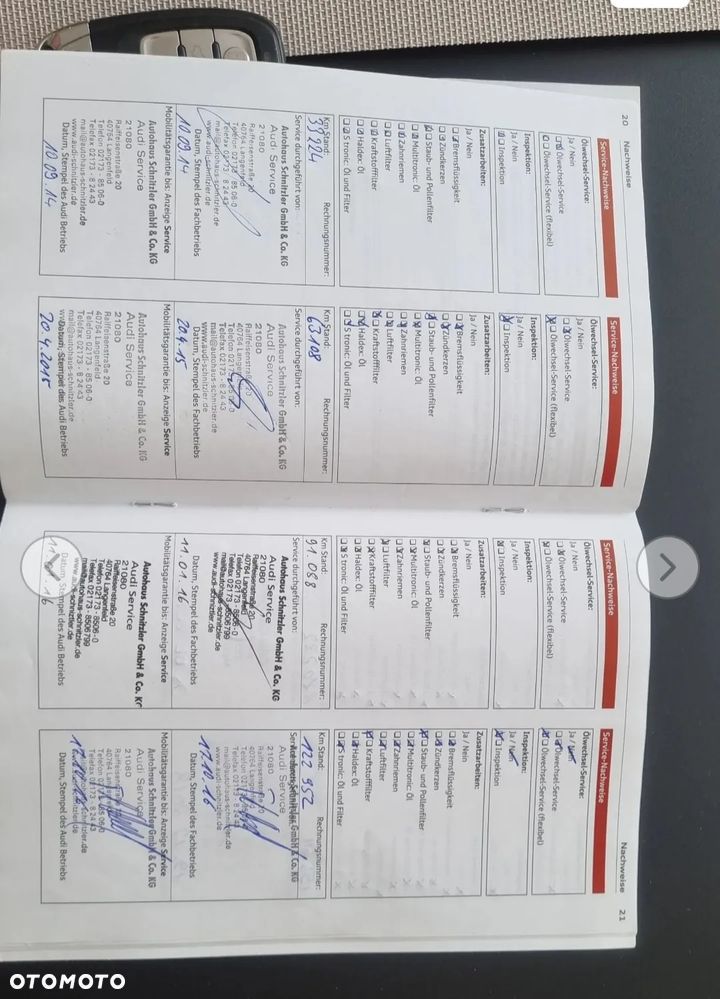 20 Nachweise
Service-Nachweise
Ölwechsel-Service:
Ja / Nein
Ölwechsel-Service
Ölwechsel-Service (flexibel)
Inspektion:
Ja / Nein
Inspektion
Zusatzarbeiten:
Ja / Nein
Bremsflüssigkeit
Zündkerzen
Staub- und Pollenfilter
Multitronic Öl
Zahnriemen
Luftfilter
Kraftstofffilter
Haldex: Öl
S tronic: Öl und Filter
Km Stand: Rechnungsnummer:
Service durchgeführt von:
Autohaus Schnitzler GmbH & Co. KG
Audi Service
21080
Raiffeisenstraße 20
40764 Langenfeld
Telefon 02173 - 85 06-0
Telefax 02173 - 8 24 43
mail@autohaus-schnitzler.de
www.audi-schnitzler.de
10.09.14
Datum, Stempel des Fachbetriebs
Mobilitätsgarantie bis: Anzeige Service
Autohaus Schnitzler GmbH & Co. KG
Audi Service
21080
Raiffeisenstraße 20
40764 Langenfeld
Telefon 02173 - 85 06-0
Telefax 02173 - 8 24 43
mail@autohaus-schnitzler.de
www.audi-schnitzler.de
10.09.14
Datum, Stempel des Audi Betriebs
Service-Nachweise
Ölwechsel-Service:
Ja / Nein
Ölwechsel-Service
Ölwechsel-Service (flexibel)
Inspektion:
Ja / Nein
Inspektion
Zusatzarbeiten:
Ja / Nein
Bremsflüssigkeit
Zündkerzen
Staub- und Pollenfilter
Multitronic: Öl
Zahnriemen
Luftfilter
Kraftstofffilter
Haldex: Öl
S tronic: Öl und Filter
Km Stand: Rechnungsnummer:
63108
Service durchgeführt von:
Autohaus Schnitzler GmbH & Co. KG
Audi Service
21080
Raiffeisenstraße 20
40764 Langenfeld
mail@autohaus-schnitzler.de
www.audi-schnitzler.de
20.4.15
Datum, Stempel des Fachbetriebs
Mobilitätsgarantie bis: Anzeige Service
Autohaus Schnitzler GmbH & Co. KG
Audi Service
21080
Raiffeisenstraße 20
40764 Langenfeld
Telefon 02173 - 85 06-0
Telefax 02173 - 8 24 43
mail@autohaus-schnitzler.de
Datum, Stempel des Audi Betriebs
20.4.2015
Service-Nachweise
Ölwechsel-Service:
Ja / Nein
Ölwechsel-Service
Ölwechsel-Service (flexibel)
Inspektion:
Ja / Nein
Inspektion
Zusatzarbeiten:
Ja / Nein
Bremsflüssigkeit
Zündkerzen
Staub- und Pollenfilter
Multitronic: Öl
Zahnriemen
Luftfilter
Kraftstofffilter
Haldex: Öl
S tronic: Öl und Filter
Km Stand: Rechnungsnummer:
91 088
Service durchgeführt von:
Autohaus Schnitzler GmbH & Co. KG
Audi Service
21080
Raiffeisenstraße 20
40764 Langenfeld
Telefon 02173 - 8506-0
Telefax 02173 - 8506799
mail@autohaus-schnitzler.de
www.audi-schnitzler.de
11.01.16
Datum, Stempel des Fachbetriebs
Mobilitätsgarantie bis: Anzeige Service
Autohaus Schnitzler GmbH & Co. KG
Audi Service
21080
Raiffeisenstraße 20
40764 Langenfeld
Telefon 02173 - 8506-0
Telefax 02173 - 8506799
mail@autohaus-schnitzler.de
www.audi-schnitzler.de
Datum, Stempel des Audi Betriebs
Nachweise 21
Service-Nachweise
Ölwechsel-Service:
Ja / Nein
Ölwechsel-Service
Ölwechsel-Service (flexibel)
Inspektion:
Ja / Nein
Inspektion
Zusatzarbeiten:
Ja / Nein
Bremsflüssigkeit
Zündkerzen
Staub- und Pollenfilter
Multitronic: Öl
Zahnriemen
Luftfilter
Kraftstofffilter
Haldex: Öl
S tronic: Öl und Filter
Km Stand: Rechnungsnummer:
122 952
Autohaus Schnitzler GmbH & Co. KG
Audi Service
21080
Raiffeisenstraße 20
40764 Langenfeld
17.10.16
Datum, Stempel des Fachbetriebs
Mobilitätsgarantie bis: Anzeige Service
Autohaus Schnitzler GmbH & Co. KG
Audi Service
21080
Raiffeisenstraße 20
40764 Langenfeld
Telefax 02173 - 8 24 43
Datum, Stempel des Audi Betriebs
OTOMOTO